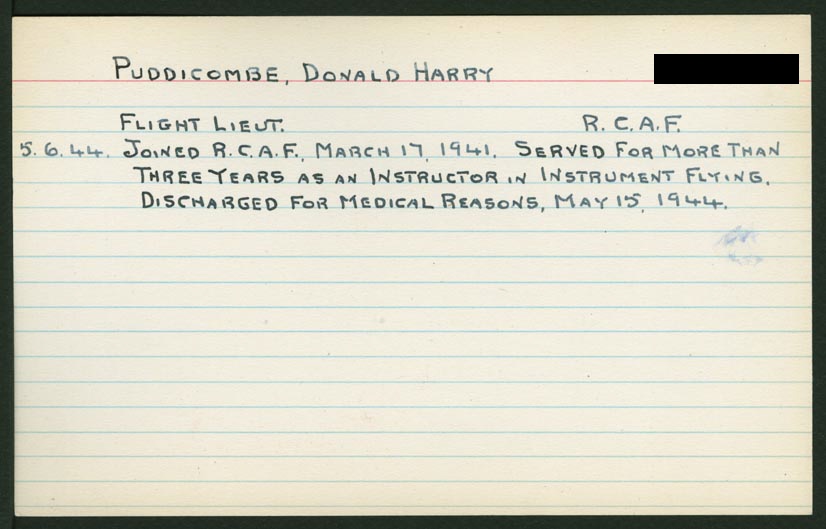 PUDDICOMBE, DONALD HARRY
FLIGHT LIEUT. R.C.A.F.
5.6.44. JOINED R.C.A.F., MARCH 17, 1941. SERVED FOR MORE THAN
THREE YEARS AS AN INSTRUCTOR IN INSTRUMENT FLYING.
DISCHARGED FOR MEDICAL REASONS, MAY 15, 1944.